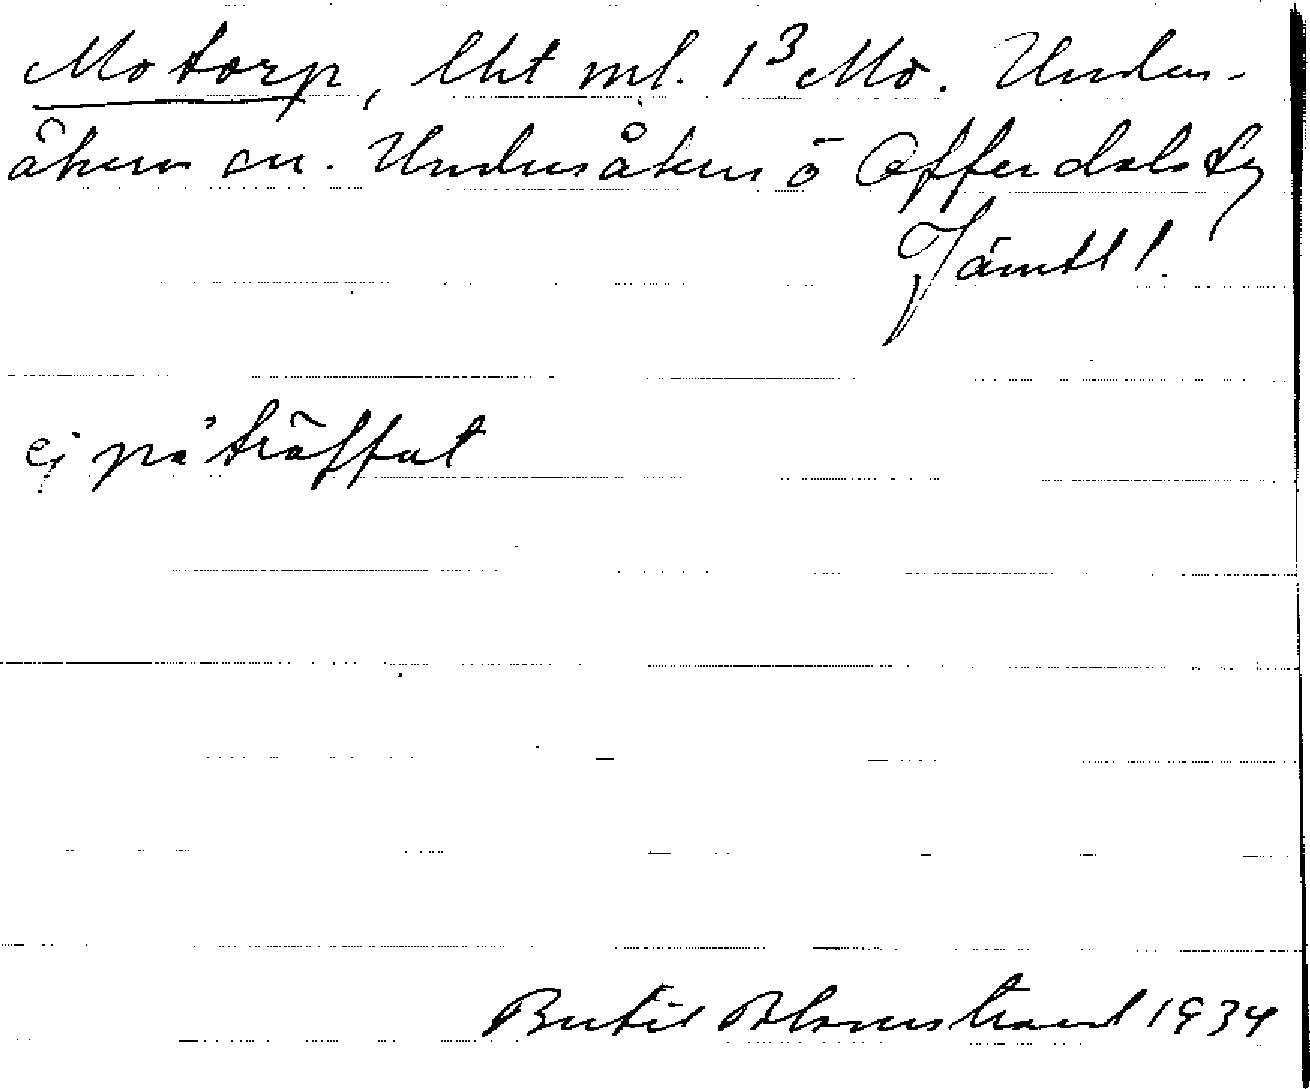 Motorp, lht ml. 1³ Mo. Unders-
åkers sn. Undersåkers o Offerdals tg
Jämtl l.
ej påträffat
Bertil Blomstrand 1934